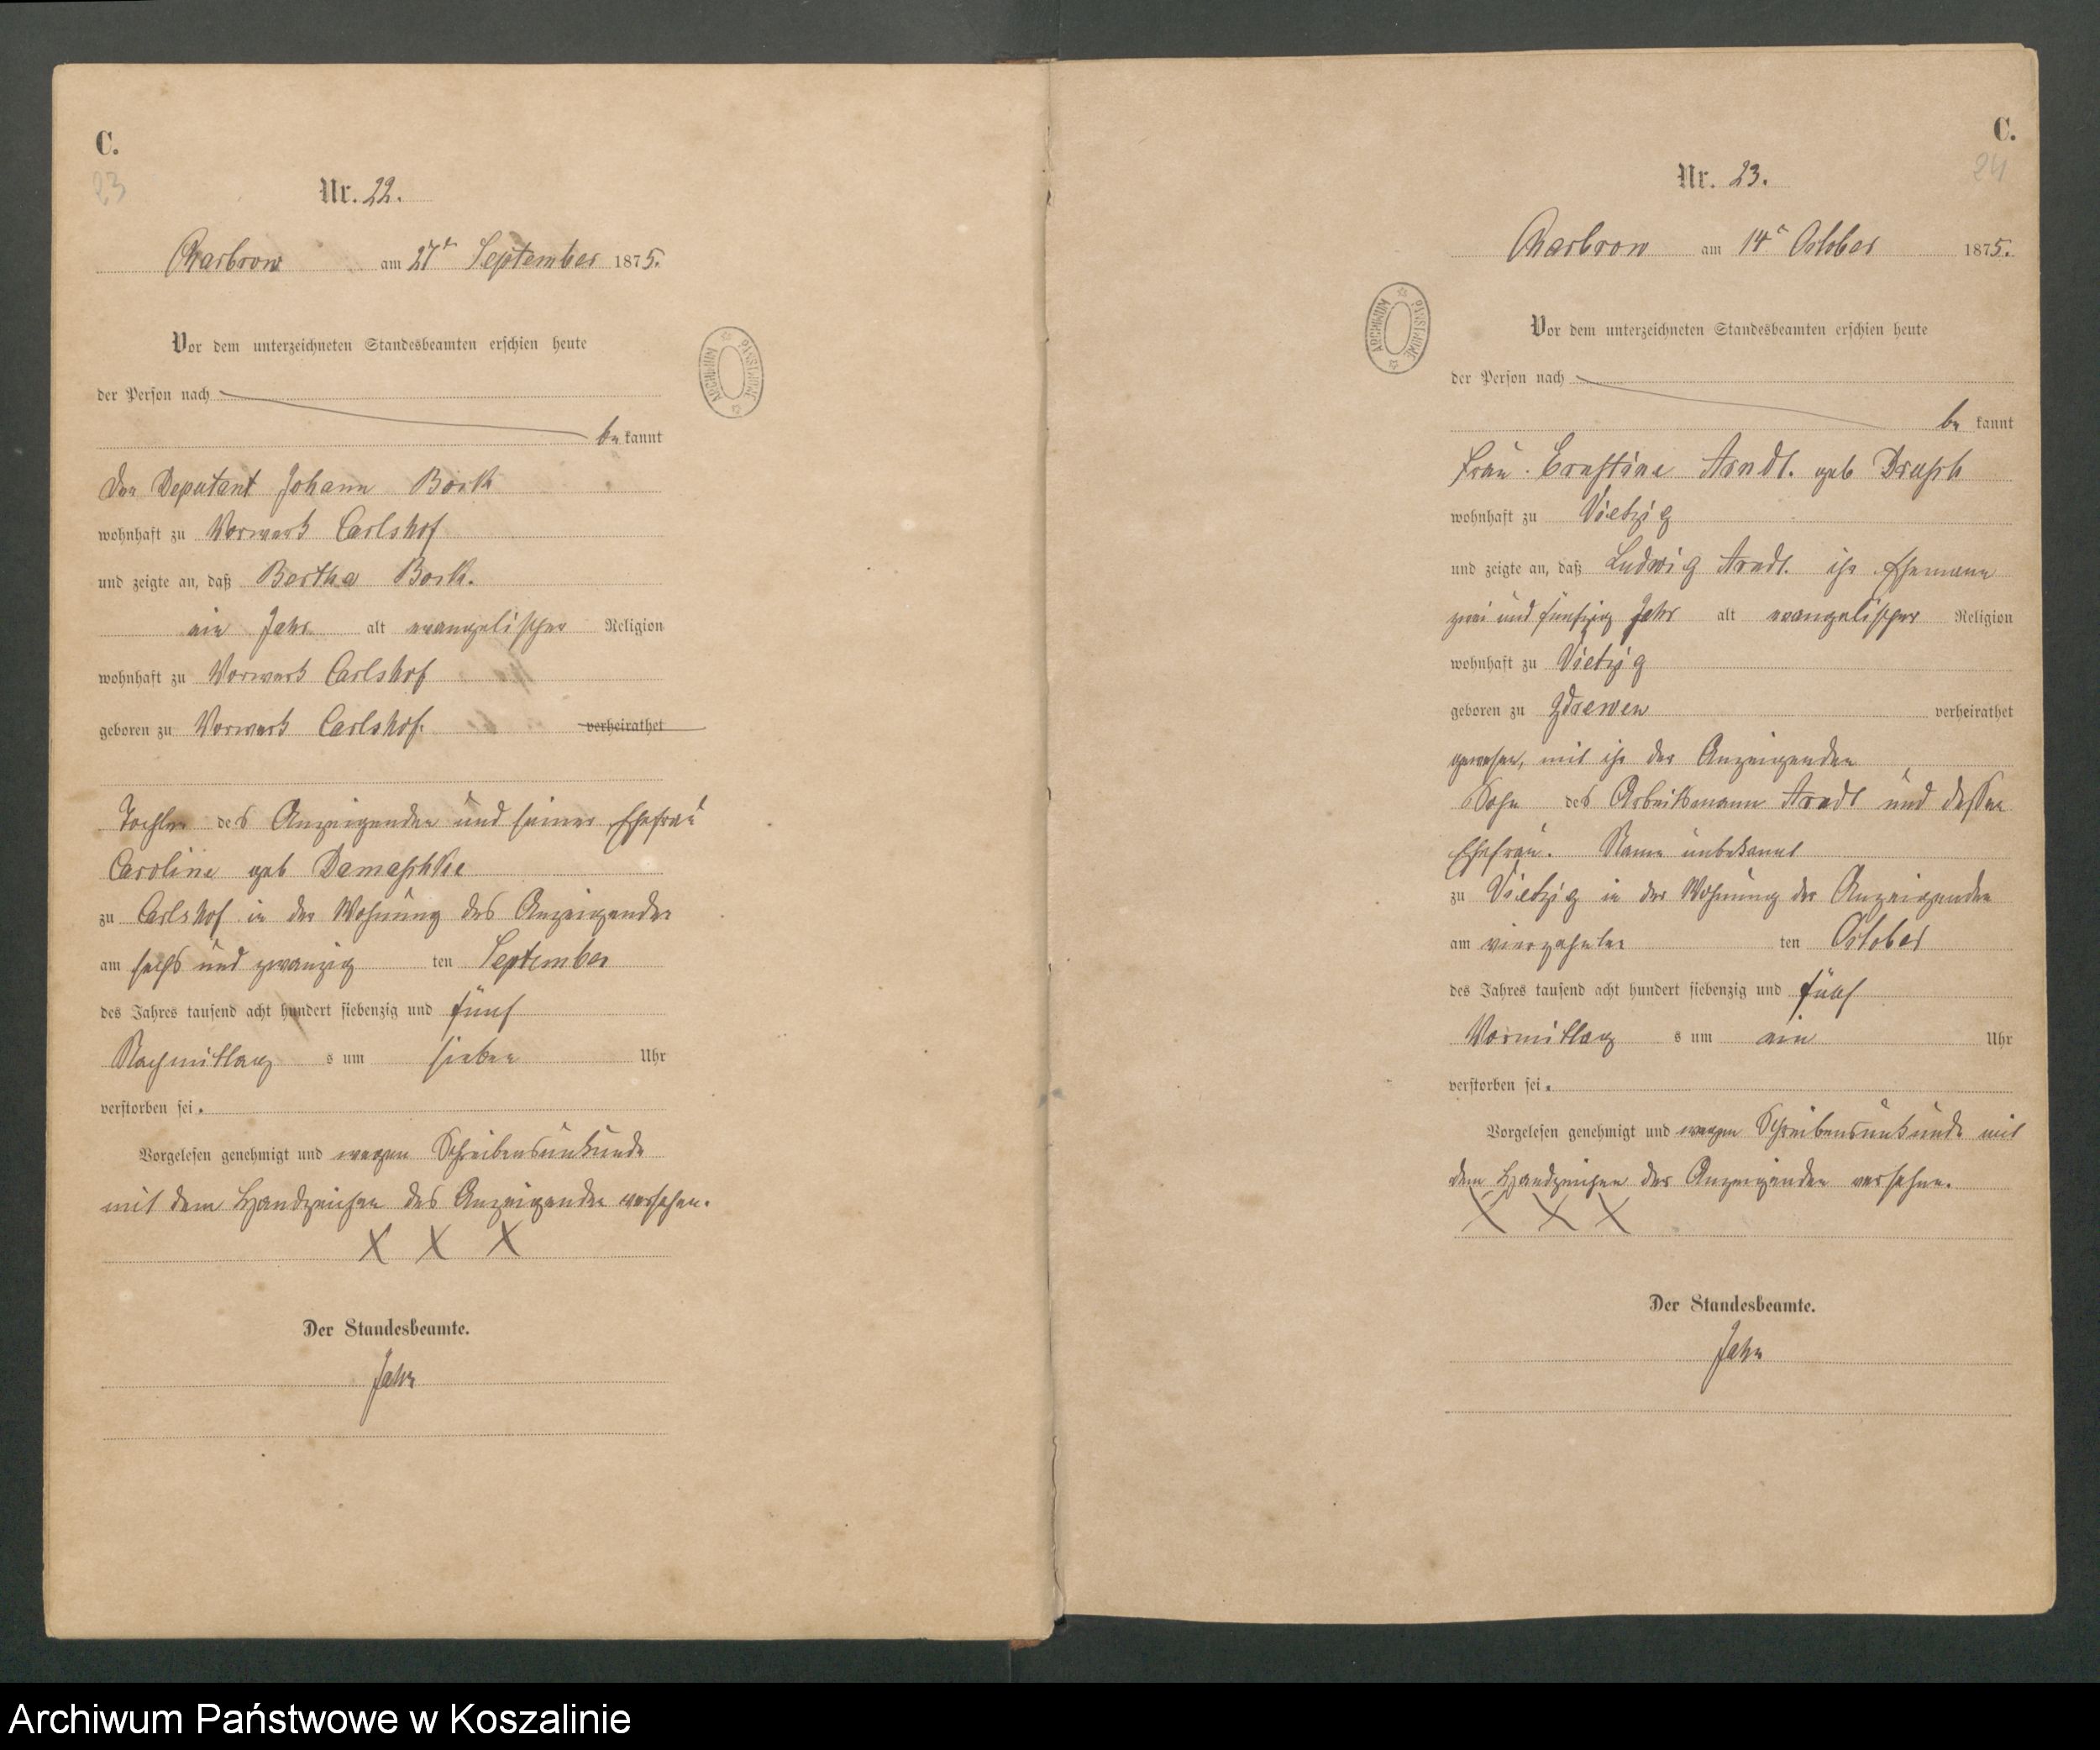 C.
23
Nr. 22.
Charbrow am 27t September 1875.
Vor dem unterzeichneten Standesbeamten erschien heute
der Person nach
be kannt
der Deputant Johann Bork
wohnhaft zu Vorwerk Carlshof
und zeigte an, daß Bertha Bork.
ein Jahr alt evangelischer Religion
wohnhaft zu Vorwerk Carlshof
geboren zu Vorwerk Carlshof. verheirathet
Tochter des Anzeigenden und seiner Ehefrau
Caroline geb Damaschke
zu Carlshof in der Wohnung des Anzeigenden
am sechs und zwanzig ten September
des Jahres tausend acht hundert siebenzig und fünf
Nachmittag s um sieben Uhr
verstorben sei.
Vorgelesen genehmigt und wegen Schreibensunkunde
mit dem Handzeichen des Anzeigenden versehen.
X X X
Der Standesbeamte.
Jahn
ARCHIWUM PAŃSTWOWE
C.
24
Nr. 23.
Charbrow am 14t October 1875.
Vor dem unterzeichneten Standesbeamten erschien heute
der Person nach
be kannt
Frau Ernstine Arndt. geb
wohnhaft zu Vietzig
und zeigte an, daß Ludwig Arndt. ihr Ehemann
zwei und fünfzig Jahr alt evangelischer Religion
wohnhaft zu Vietzig
geboren zu Zdrewen verheirathet
gewesen, mit ihr der Anzeigenden
Sohn des Arbeitsmann Arndt und dessen
Ehefrau. Name unbekannt
zu Vietzig in der Wohnung der Anzeigenden
am vierzehnten ten October
des Jahres tausend acht hundert siebenzig und fünf
Vormittag s um ein Uhr
verstorben sei.
Vorgelesen genehmigt und wegen Schreibensunkunde mit
dem Handzeichen der Anzeigenden versehen.
X X X
Der Standesbeamte.
Jahn
ARCHIWUM PAŃSTWOWE
Archiwum Państwowe w Koszalinie